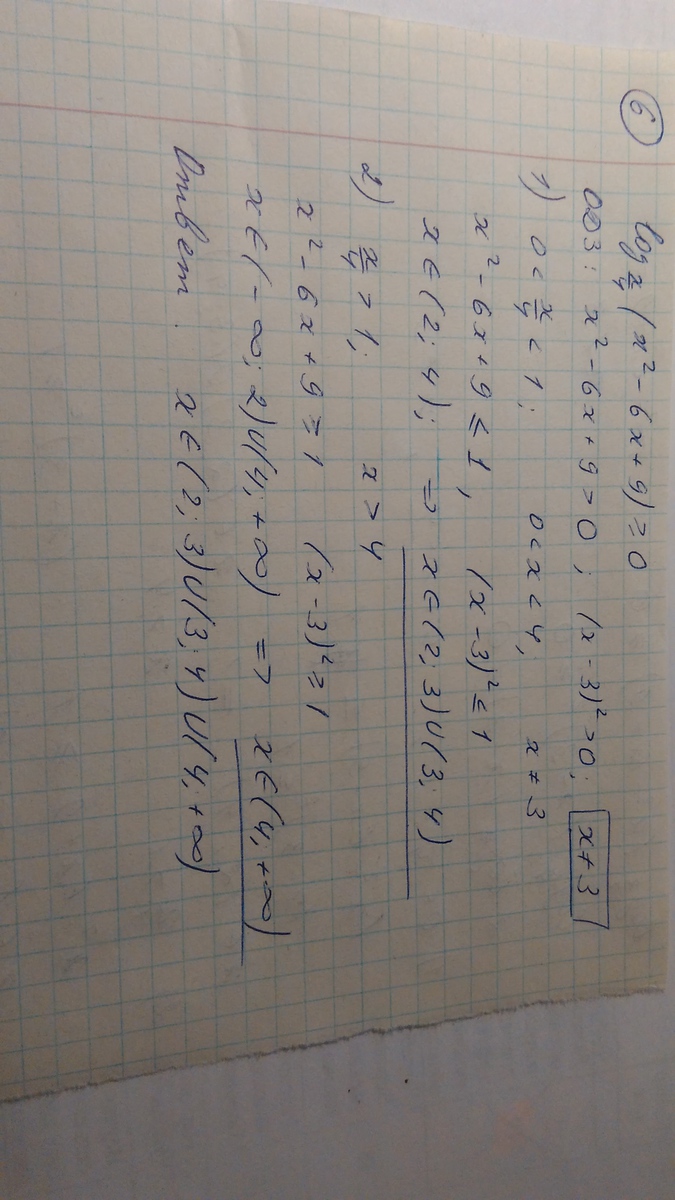 6
log x/4 (x² - 6x + 9) ≥ 0
ОДЗ: x² - 6x + 9 > 0; (x - 3)² > 0; x ≠ 3
1) 0 < x/4 < 1; 0 < x < 4; x ≠ 3
x² - 6x + 9 ≤ 1, (x - 3)² ≤ 1
x ∈ (2; 4); => x ∈ (2; 3) U (3; 4)
2) x/4 > 1; x > 4
x² - 6x + 9 ≥ 1 (x - 3)² ≥ 1
x ∈ (- ∞; 2) U (4; + ∞) => x ∈ (4; + ∞)
Ответ: x ∈ (2; 3) U (3; 4) U (4; + ∞)